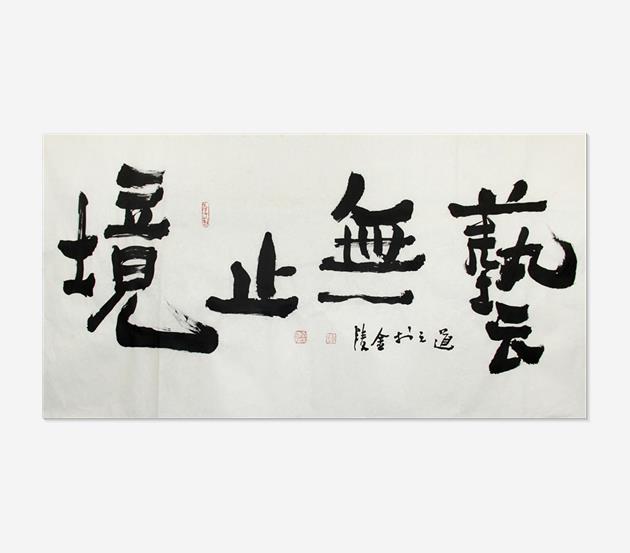 藝無止境
道之於金陵